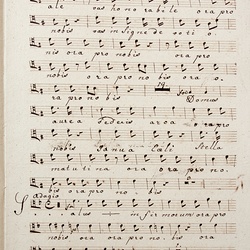 ale vas honorabile ora pro
nobis vas insigne devoti o
nis ora pro nobis ora pro
nobis ora pro nobis ora o.
ra pro nobis Solo Domus
aurea Federis arca o ra pro
nobis Janua Cæli Stella
matutina ora pro no.
bis ora pro no. bis
Adagio
Salus infirmorum ora pro
nobis ora pro nobis ora pro